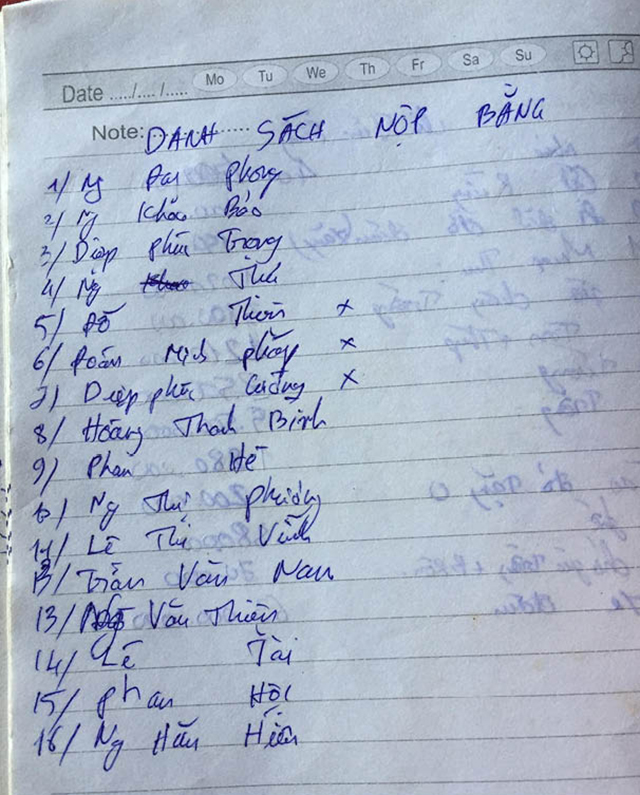 Date ..../..../..... Mo Tu We Th Fr Sa Su
Note: DANH SÁCH NỘP BẰNG
1/ Ng Đại Phong
2/ Ng Khắc Bảo
3/ Diệp Phúc Trọng
4/ Ng Tĩnh
5/ Đỗ Thiên x
6/ Đoàn Minh Pháp x
7/ Diệp Phúc Cường x
8/ Hoàng Thanh Bình
9/ Phan Hết
10/ Ng Thị Phương
11/ Lê Thị
12/ Trần Văn Nam
13/ Văn Thiện
14/ Lê Tài
15/ Phan Hội
16/ Ng Hiền